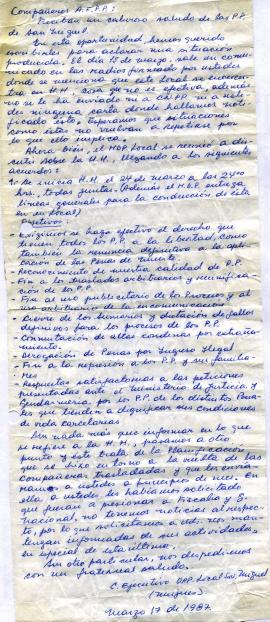 Compañeros A.F.P.P.:
Reciban un caluroso saludo de los P.P.
de San Miguel.
En esta oportunidad hemos querido
escribirles para aclarar una situación
producida. El día 15 de marzo, sale un
comunicado en las radios firmado por ustedes
donde se menciona que este local se encuentra
en H.H. cosa que no es efectiva, además
no se le ha enviado ni a CHPP ni a uste-
des ninguna carta donde hallamos noti-
ficado esto, esperamos que situaciones
como esta no vuelvan a repetirse por
lo que ello implica.
Ahora bien, el MDP local se reunió a dis-
cutir sobre la H.H. llegando a los siguientes
acuerdos:
1º Se inicia H.H. el 24 de marzo a las 24:00
hrs. todas juntas. (Además el MDP entrega
líneas generales para la conducción de ésta
en su local)
Objetivos:
- Exigimos se haga efectivo el derecho que
tienen todos los P.P. a la libertad, como
también la renuncia definitiva a la apli-
cación de las Penas de Muerte.
- Reconocimiento de nuestra calidad de P.P.
- Fin a los traslados arbitrarios y reunifica-
ción de los P.P.
- Fin al uso publicitario de los Procesos y al
uso arbitrario de la incomunicación
- Cierre de los Sumarios y dictación de fallos
definitivos para los procesos de los P.P.
- Conmutación de altas condenas por extraña-
miento.
- Derogación de Penas por Ingreso Ilegal
- Fin a la represión a los P.P. y sus familia-
res
- Respuestas satisfactorias a las peticiones
presentadas ante el Ministerio de Justicia y
Gendarmería por los P.P. de los distintos Pena-
les que tienden a dignificar sus condiciones
de vida carcelarias.
Sin nada más que informar en lo que
se refiere a la H.H., pasamos a otro
punto y este trata de la Planificación
que se hizo en torno a la vuelta de las
compañeras trasladadas y que les envia-
mos a ustedes a principios de mes. En
ella a ustedes les habíamos solicitado
que fueran a presionar a Fiscalía y G.
Nacional, no tenemos noticias al respec-
to, por lo que solicitamos a uds. nos man-
tengan informadas de sus actividades,
en especial de esta última.
Sin otro particular, nos despedimos
con un fraternal saludo.
C. Ejecutivo OPP. Local San Miguel
(mujeres)
Marzo 17 de 1987.